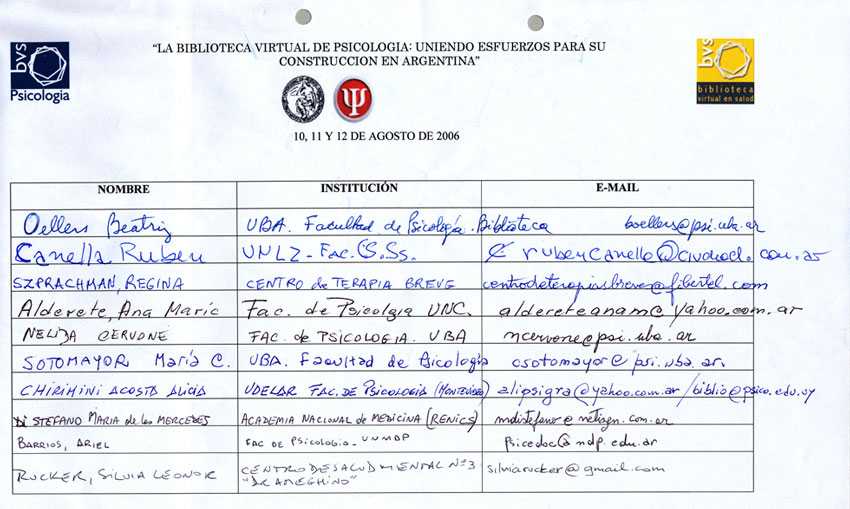 bvs
Psicología
"LA BIBLIOTECA VIRTUAL DE PSICOLOGIA: UNIENDO ESFUERZOS PARA SU
CONSTRUCCION EN ARGENTINA"
bvs
biblioteca
virtual en salud
10, 11 Y 12 DE AGOSTO DE 2006
NOMBRE INSTITUCIÓN E-MAIL
Oellers Beatriz UBA. Facultad de Psicología. Biblioteca boellers@psi.uba.ar
Canella Ruben UNLZ - Fac. CS. Ss.
SZPRACHMAN, REGINA CENTRO de TERAPIA BREVE centrodeterapiasbreve@fibertel.com
Alderete, Ana Maric Fac. de Psicolgia UNC. aldereteanam@yahoo.com.ar
NELIDA CERVONE FAC. de PSICOLOGIA. UBA ncervone@psi.uba.ar
SOTOMAYOR María C. UBA. Facultad de Psicología csotomayor@psi.uba.ar.
CHIRIMINI ACOSTA ALICIA UDELAR FAC. DE PSICOLOGIA (MONTEVIDEO) alipsigra@yahoo.com.ar / biblio@psico.edu.uy
DI STEFANO MARIA de las MERCEDES ACADEMIA NACIONAL DE MEDICINA (RENICS) mdistefano@netizen.com.ar
BARRIOS, ARIEL FAC DE PSICOLOGIA - UNMDP psicedoc@mdp.edu.ar
RUCKER, SILVIA LEONOR CENTRO DE SALUD MENTAL Nº3 silviarucker@gmail.com
"DR AMEGHINO"